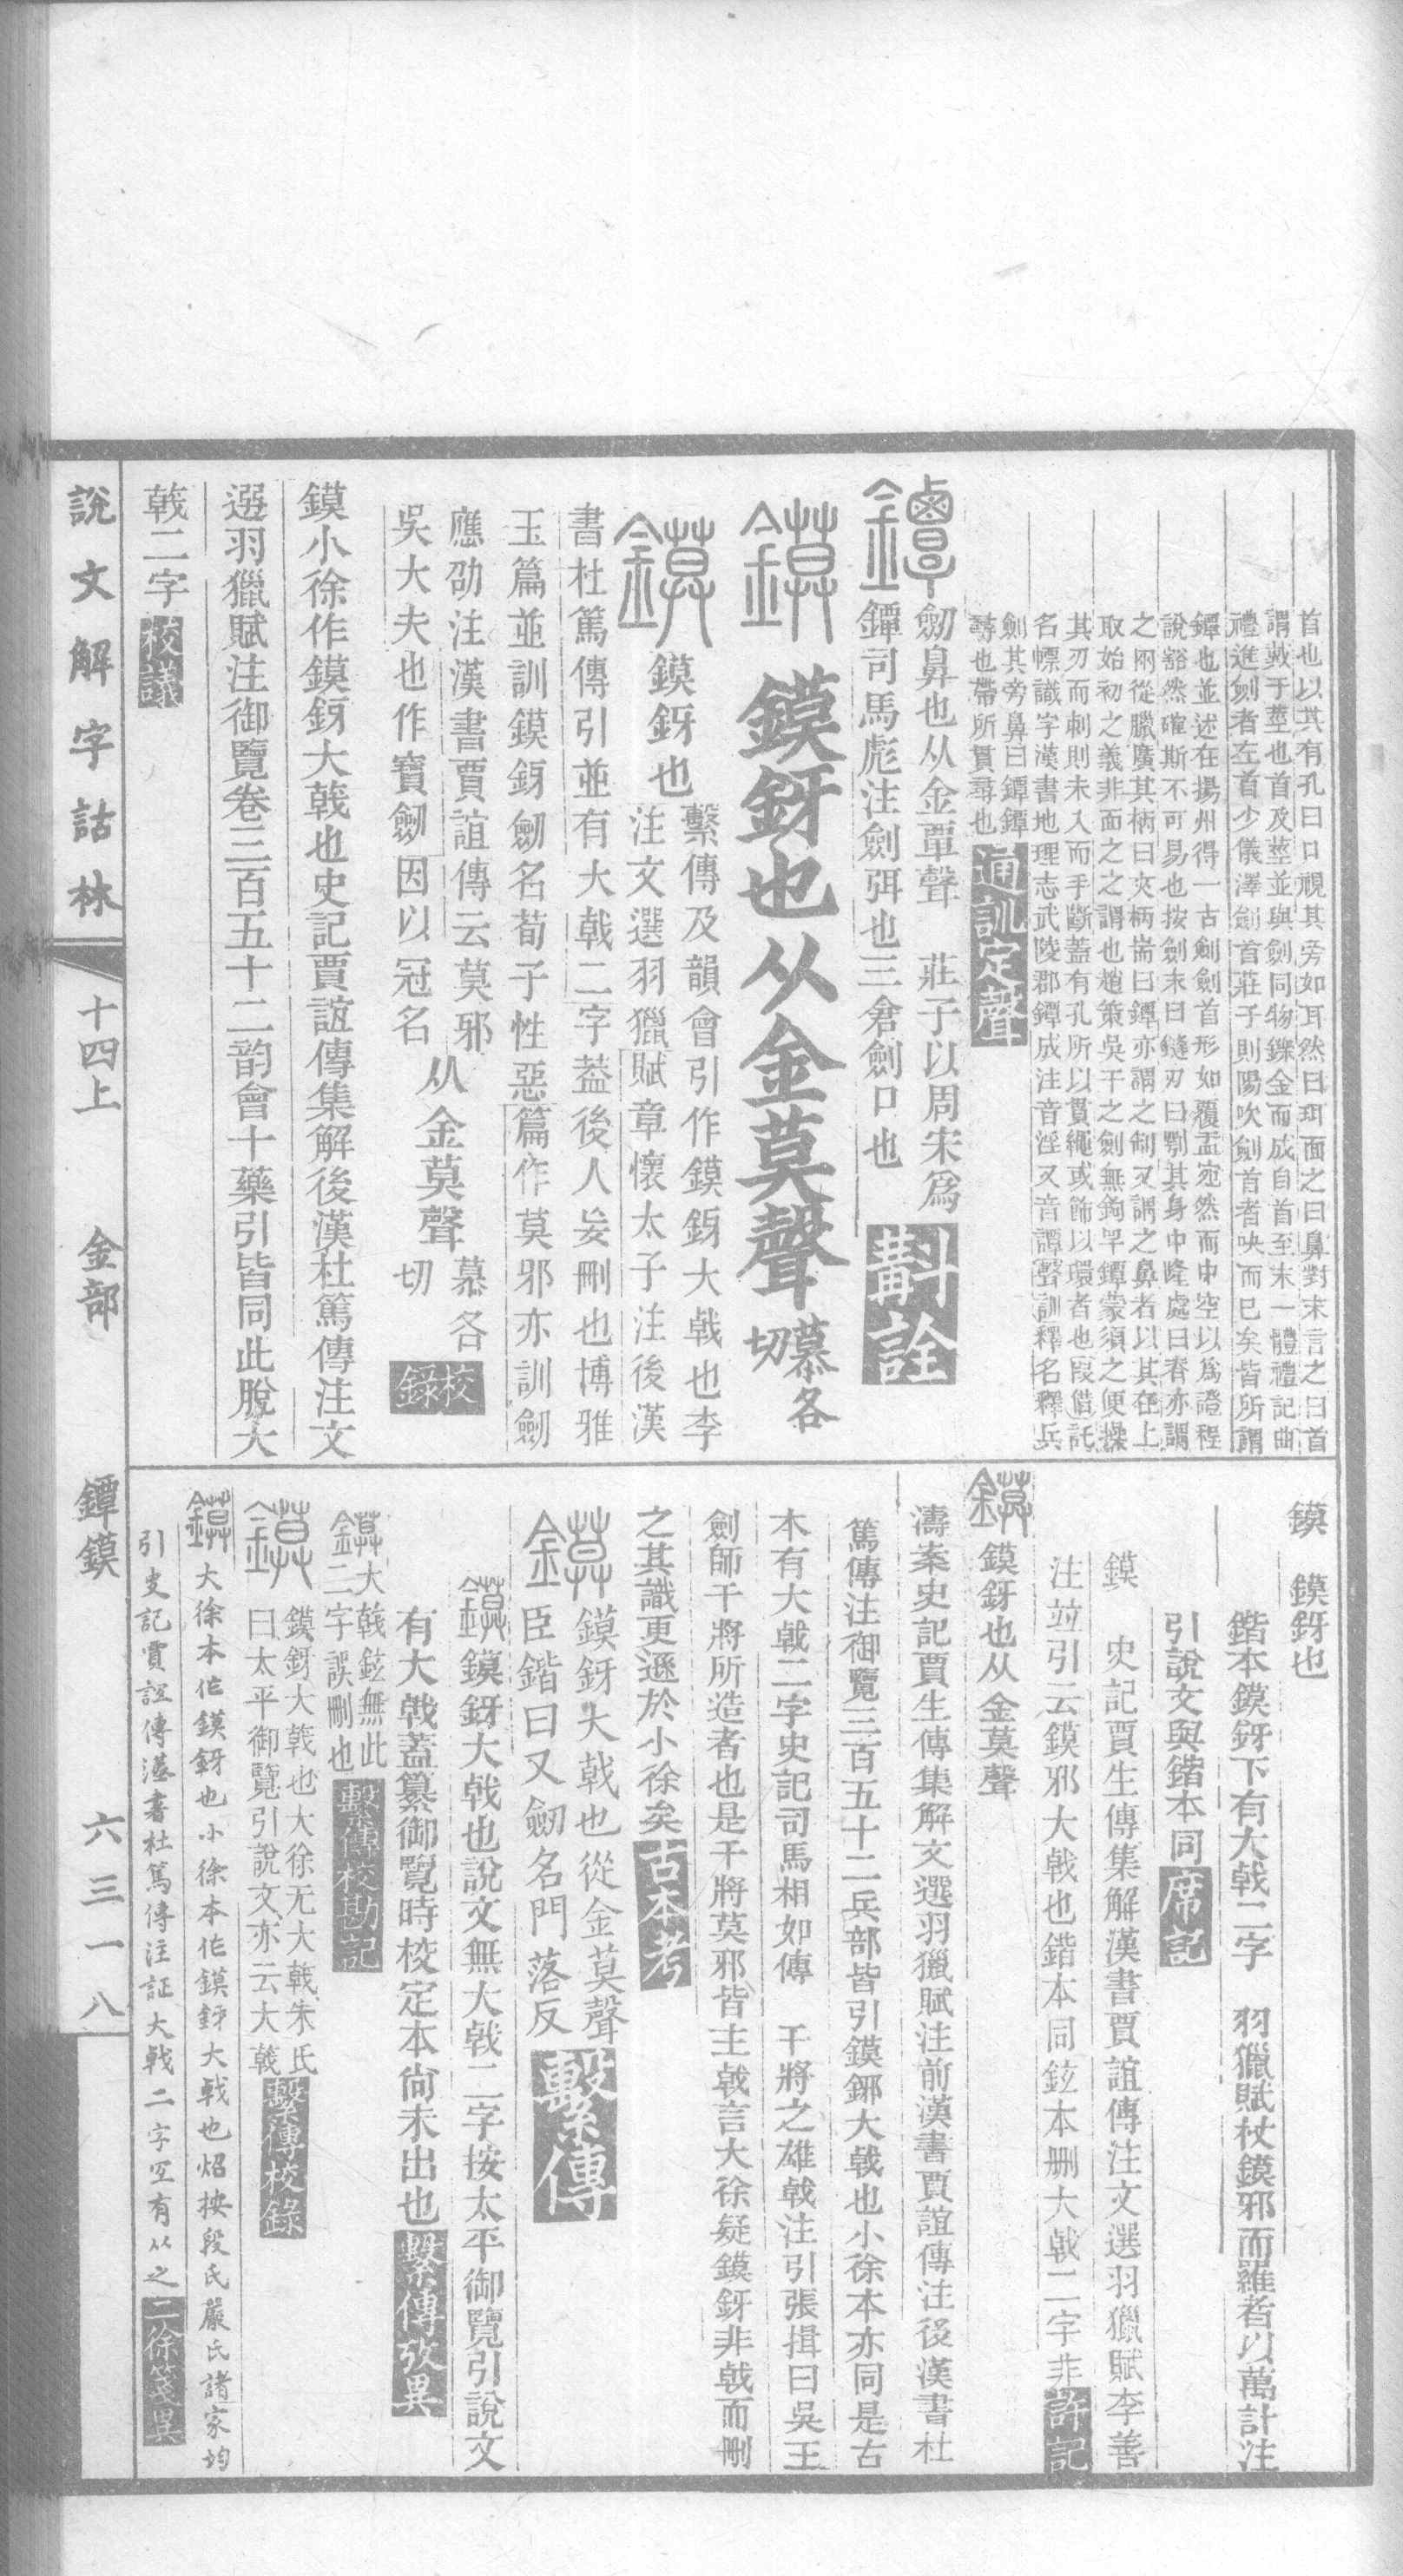 首也以其有孔曰口視其旁如耳然曰珥面之曰鼻對末言之曰首
謂戴于莖也首及莖並與劍同物鑠金而成自首至末一體禮記曲
禮進劍者左首少儀澤劍首莊子則陽吹劍首者吷而已矣皆所謂
鐔也並述在揚州得一古劍劍首形如覆盂宛然而中空以爲證程
說豁然確斯不可易也按劍末曰鏠刃曰鄂其身中隆處曰脊亦謂
之㒳從臘廣其柄曰夾柄耑曰鐔亦謂之㓡又謂之鼻者以其在上
取始初之義非面之之謂也趙策吳干之劍無鉤䍐鐔蒙須之便操
其刃而刺則未入而手斷蓋有孔所以貫繩或飾以環者也叚借託
名幖識字漢書地理志武陵郡鐔成注音淫又音譚聲訓釋名釋兵
劍其旁鼻曰鐔鐔
尋也帶所貫尋也通訓定聲
鐔劒鼻也从金覃聲 莊子以周宋爲
鐔司馬彪注劍弭也三倉劍口也斠詮
鏌鏌釾也从金莫聲慕各切
鏌鏌釾也繫傳及韻會引作鏌釾大戟也李
注文選羽獵賦章懷太子注後漢
書杜篤傳引並有大戟二字葢後人妄刪也博雅
玉篇並訓鏌釾劒名荀子性惡篇作莫邪亦訓劒
應劭注漢書賈誼傳云莫邪
吳大夫也作寶劒因以冠名从金莫聲慕各切校錄
鏌小徐作鏌釾大戟也史記賈誼傳集解後漢杜篤傳注文
選羽獵賦注御覽卷三百五十二韵會十藥引皆同此脫大
戟二字校議
鏌 鏌釾也
鍇本鏌釾下有大戟二字 羽獵賦杖鏌邪而羅者以萬計注
引說文與鍇本同席記
鏌 史記賈生傳集解漢書賈誼傳注文選羽獵賦李善
注竝引云鏌邪大戟也鍇本同鉉本刪大戟二字非許記
鏌鏌釾也从金莫聲
濤案史記賈生傳集解文選羽獵賦注前漢書賈誼傳注後漢書杜
篤傳注御覽三百五十二兵部皆引鏌鋣大戟也小徐本亦同是古
本有大戟二字史記司馬相如傳 干將之雄戟注引張揖曰吳王
劍師干將所造者也是干將莫邪皆主戟言大徐疑鏌釾非戟而刪
之其識更遜於小徐矣古本考
鏌鏌釾大戟也從金莫聲
臣鍇曰又劒名門落反繫傳
鏌鏌釾大戟也說文無大戟二字按太平御覽引說文
有大戟蓋纂御覽時校定本尙未出也繫傳攷異
鏌大戟鉉無此
二字誤刪也繫傳校勘記
鏌鏌釾大戟也大徐无大戟朱氏
曰太平御覽引說文亦云大戟繫傳校錄
鏌大徐本作鏌釾也小徐本作鏌釾大戟也炤按段氏嚴氏諸家均
引史記賈誼傳漢書杜篤傳注証大戟二字宜有从之二徐箋異
說文解字詁林 十四上 金部 鐔鏌 六三一八